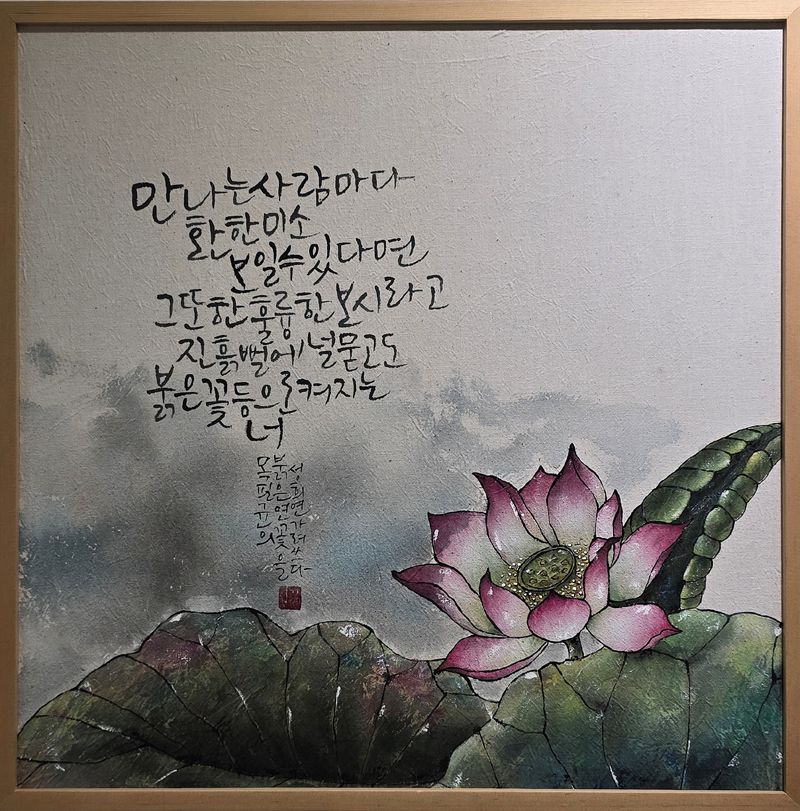 만나는 사람마다
환한 미소
보일 수 있다면
그 또한 훌륭한 보시라고
진흙뻘에 널 묻고도
붉은 꽃등으로 켜지는
너
목필균의
붉은 연꽃을
성희연 가려쓰다